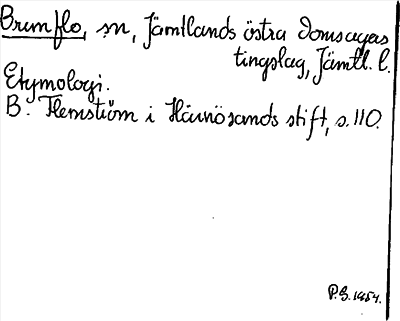 Brunflo, sn, Jämtlands östra domsagas
tingslag, Jämtl. l.
Etymologi.
B. Flemström i Härnösands stift, s. 110.
P.G. 1954.